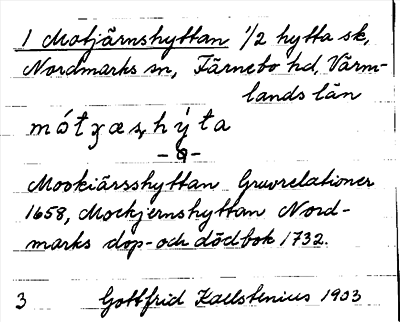 1 Motjärnshyttan 1/2 hytta sk,
Nordmarks sn, Färnebo hd, Värm-
lands län
– a –
Mookiärsshyttan Gruvrelationer
1658, Mockjernshyttan Nord-
marks dop- och dödbok 1732.
3 Gottfrid Kallstenius 1903